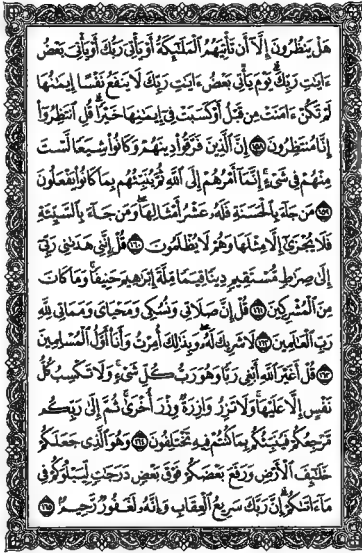 هَلْ يَنظُرُونَ إِلَّا أَن تَأْتِيَهُمُ الْمَلَٰٓئِكَةُ أَوْ يَأْتِيَ رَبُّكَ أَوْ يَأْتِيَ بَعْضُ
ءَايَٰتِ رَبِّكَ ۗ يَوْمَ يَأْتِي بَعْضُ ءَايَٰتِ رَبِّكَ لَا يَنفَعُ نَفْسًا إِيمَٰنُهَا
لَمْ تَكُنْ ءَامَنَتْ مِن قَبْلُ أَوْ كَسَبَتْ فِيٓ إِيمَٰنِهَا خَيْرًا ۗ قُلِ انتَظِرُوٓا
إِنَّا مُنتَظِرُونَ ١٥٨ إِنَّ الَّذِينَ فَرَّقُوا دِينَهُمْ وَكَانُوا شِيَعًا لَّسْتَ
مِنْهُمْ فِي شَيْءٍ ۚ إِنَّمَآ أَمْرُهُمْ إِلَى اللَّهِ ثُمَّ يُنَبِّئُهُم بِمَا كَانُوا يَفْعَلُونَ
١٥٩ مَن جَآءَ بِالْحَسَنَةِ فَلَهُۥ عَشْرُ أَمْثَالِهَا ۖ وَمَن جَآءَ بِالسَّيِّئَةِ
فَلَا يُجْزَىٰٓ إِلَّا مِثْلَهَا وَهُمْ لَا يُظْلَمُونَ ١٦٠ قُلْ إِنَّنِي هَدَىٰنِي رَبِّيٓ
إِلَىٰ صِرَٰطٍ مُّسْتَقِيمٍ دِينًا قِيَمًا مِّلَّةَ إِبْرَٰهِيمَ حَنِيفًا ۚ وَمَا كَانَ
مِنَ الْمُشْرِكِينَ ١٦١ قُلْ إِنَّ صَلَاتِي وَنُسُكِي وَمَحْيَايَ وَمَمَاتِي لِلَّهِ
رَبِّ الْعَٰلَمِينَ ١٦٢ لَا شَرِيكَ لَهُۥ ۖ وَبِذَٰلِكَ أُمِرْتُ وَأَنَا۠ أَوَّلُ الْمُسْلِمِينَ
١٦٣ قُلْ أَغَيْرَ اللَّهِ أَبْغِي رَبًّا وَهُوَ رَبُّ كُلِّ شَيْءٍ ۚ وَلَا تَكْسِبُ كُلُّ
نَفْسٍ إِلَّا عَلَيْهَا ۚ وَلَا تَزِرُ وَازِرَةٌ وِزْرَ أُخْرَىٰ ۚ ثُمَّ إِلَىٰ رَبِّكُم
مَّرْجِعُكُمْ فَيُنَبِّئُكُم بِمَا كُنتُمْ فِيهِ تَخْتَلِفُونَ ١٦٤ وَهُوَ الَّذِي جَعَلَكُمْ
خَلَٰٓئِفَ الْأَرْضِ وَرَفَعَ بَعْضَكُمْ فَوْقَ بَعْضٍ دَرَجَٰتٍ لِّيَبْلُوَكُمْ فِي
مَآ ءَاتَىٰكُمْ ۗ إِنَّ رَبَّكَ سَرِيعُ الْعِقَابِ وَإِنَّهُۥ لَغَفُورٌ رَّحِيمٌۢ ١٦٥